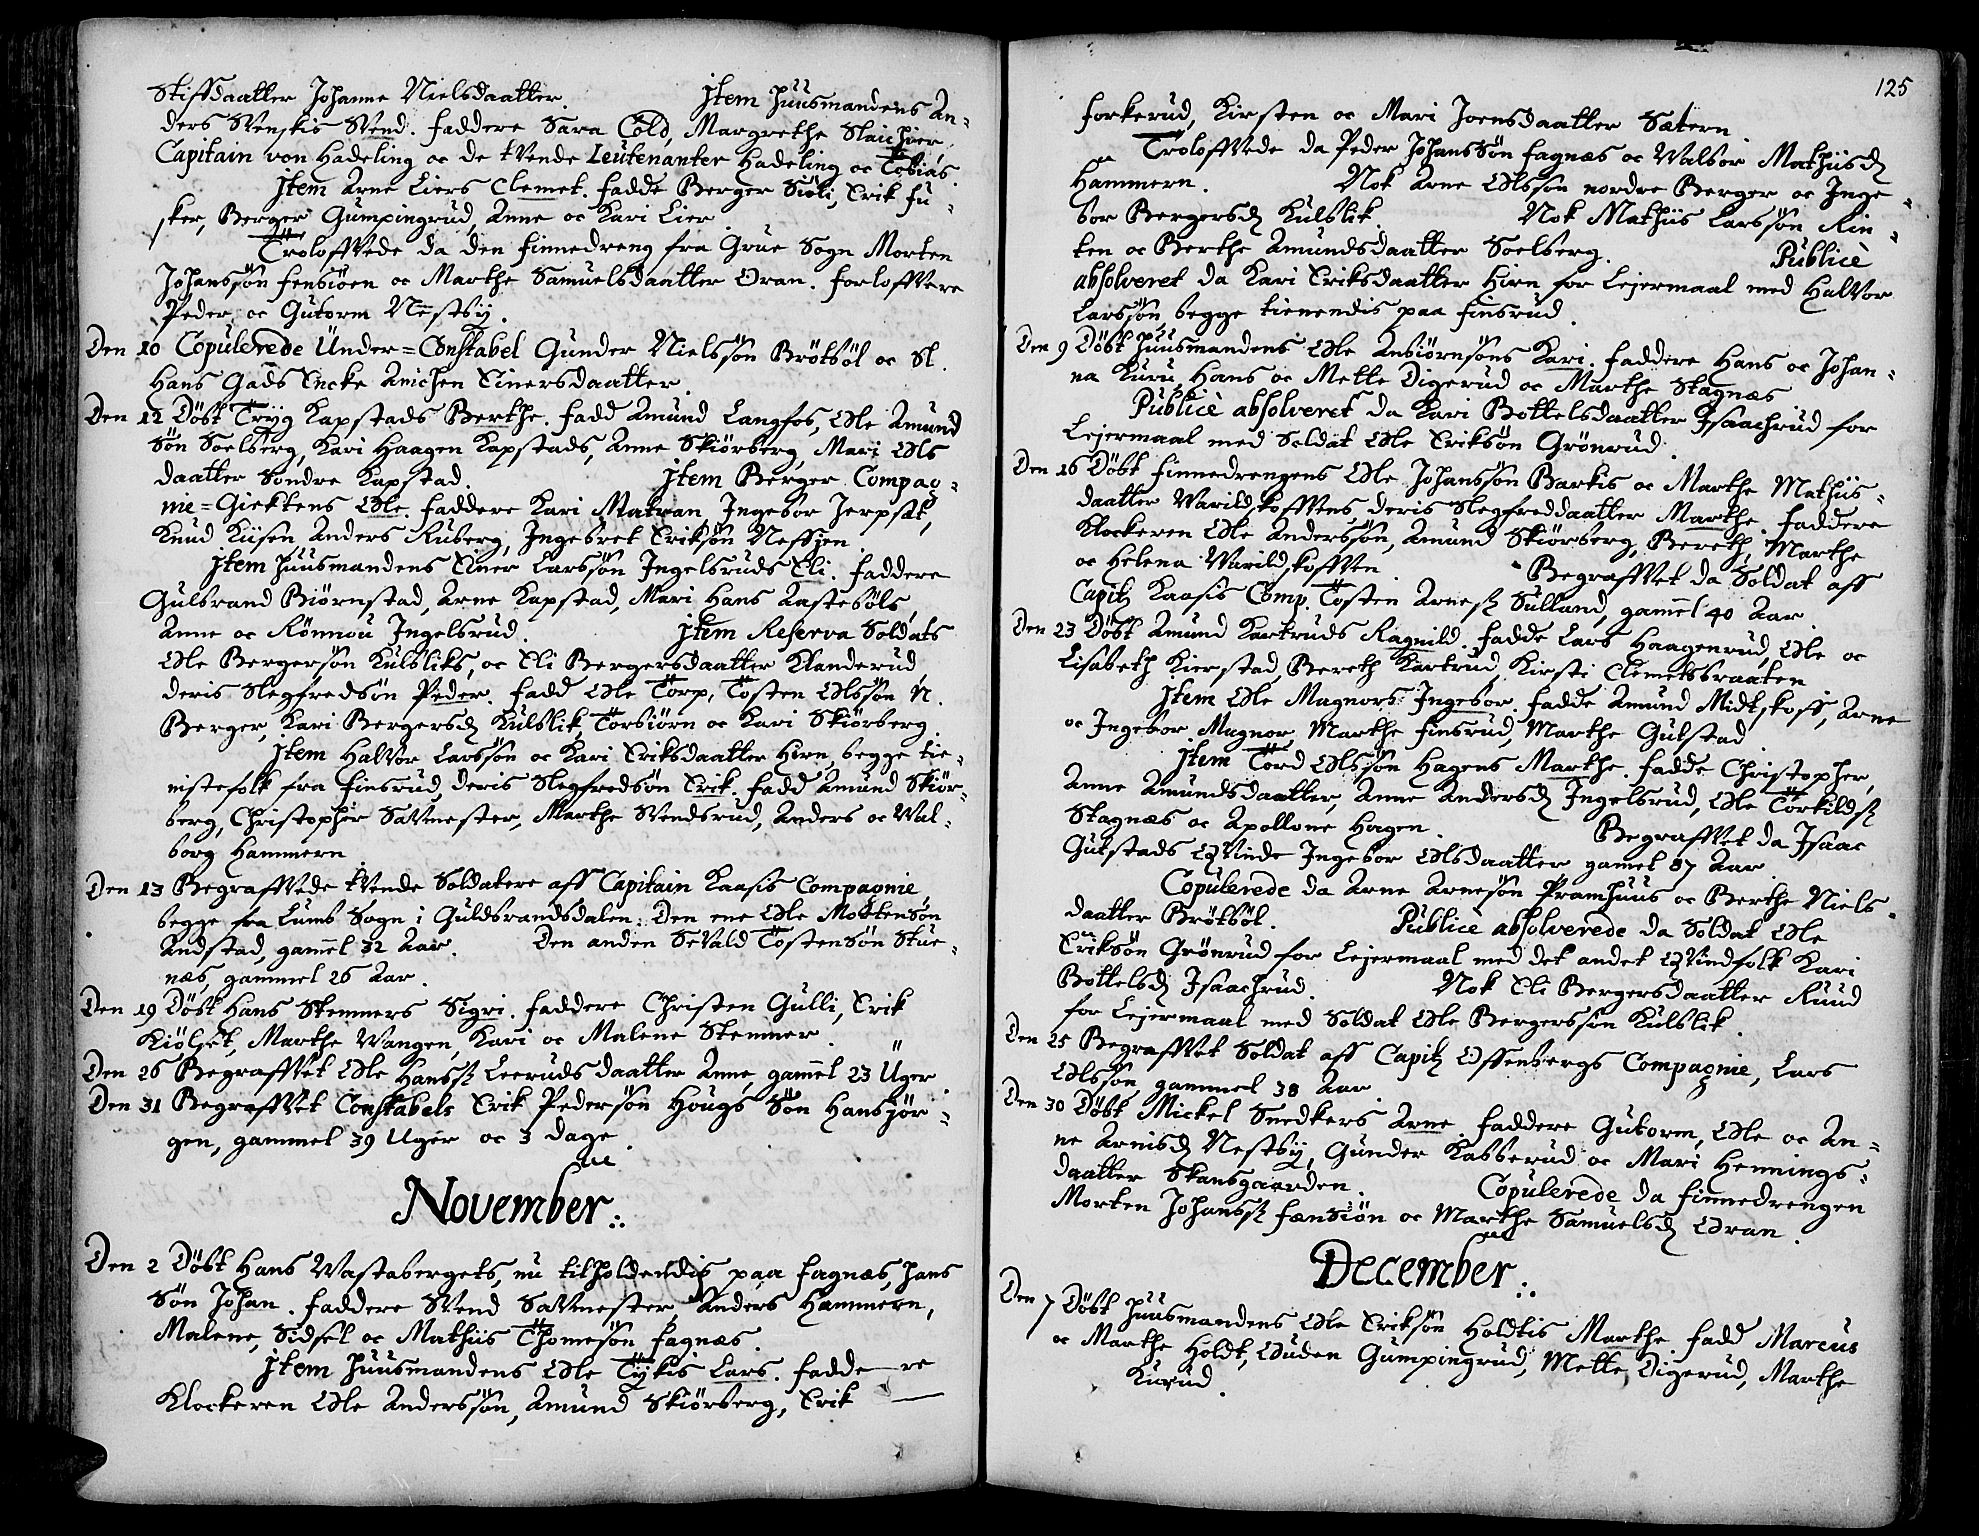 Stiffdaatter Johanne Nielsdaatter. Jtem Huusmandens An-
ders Svenskis Svend. Faddere Sara Cold, Margrethe Slaichier,
Capitain von Hadeling oc de tvende Leutenanter Hadeling oc Tobias.
Jtem Arne Liers Clemet. Fadde Berger Siöli, Erik Fu-
sker, Berger Gumpingrud, Anne oc Kari Lier.
Troloffvede da den Finnedreng fra Grue Sogn Morten
Johanssön Fensiöen oc Marthe Samuelsdaatter Oran. Forloffvere
Peder oc Gutorm Nestby.
Den 10 Copulerede Under=Constabel Gunder Nielssön Brötböl oc Sl.
Hans Gads Encke Anichen Einersdaatter.
Den 12 Döbt Tryg Kapstads Berthe. Fadd Amund Langfos, Ole Amund
Sön Soelberg, Kari Haagen Kapstads, Anne Skiörberg, Mari Ols
daatter Söndre Kapstad. Jtem Berger Compag-
nie=Giektens Ole. Faddere Kari Matran, Ingebor Jerpset,
Knud Kiisen Anders Ruberg, Ingebret Eriksön Neffien
Jtem Huusmandens Einer Larssön Ingelsruds Eli. Faddere
Gulbrand Biörnstad, Arne Kapstad, Mari Hans Aasteböls,
Anne oc Rönnou Ingelsrud. Jtem Reserva Soldats
Ole Bergersön Kulbliks, oc Eli Bergersdaatter Klanderud
deris Slegfredsön Peder. Fadd Ole Torp, Tosten Olssön N.
Berger, Kari Bergersd Kulblik, Torbiörn oc Kari Skiörberg.
Jtem Halvor Larssön oc Kari Eriksdaatter Hirn, begge tie-
nistefolk fra Finsrud, deris Slegfredsön Erik. Fadd Amund Skiör-
berg, Christopher Saffmester, Marthe Svendsrud, Anders oc Val-
borg Hammern
Den 13 Begraffvede tvende Soldatere aff Capitain Kaasis Compagnie
begge fra Lums Sogn i Guldbrandsdalen: Den ene Ole Mortensön
Andstad, gammel 32 Aar. Den anden Sevald Tostensön Stue-
næs, gammel 26 Aar.
Den 19 Döbt Hans Stemners Sigri. Faddere Christen Gulli, Erik
Kiölset, Marthe Vangen, Kari oc Malene Stemner.
Den 26 Begraffvet Ole Hanss Leeruds daatter Anne, gamel 23 Uger.
Den 31 Begraffvet Constabels Erik Pedersön Hougs Sön Hans Jör-
gen, gammel 39 Uger oc 3 dage.
November.
Den 2 Döbt Hans Vastabergets, nu tilholdendis paa Fagnæs, hans
Sön Johan. Faddere Svend Saffmester Anders Hammern,
Malene, Sidsel oc Mathiis Thomesön Fagnæs.
Jtem Huusmandens Ole Tykis Lars. Fadde re
Klockeren Ole Anderssön, Amund Skiörberg, Erik
125
Forkerud, Kirsten oc Mari Joensdaatter Sætern.
Troloffvede da Peder Johanssön Fagnæs oc Valbor Mathiisd
Hammern. Nok Arne Olssön nordre Berger oc Inge-
bor Bergersd Kulblik. Nok Mathiis Larssön Rin-
ten oc Berthe Amundsdaatter Soelberg. Publicè
absolveret da Kari Eriksdaatter Hirn for Lejermaal med Halvor
Larssön begge tienendis paa Finsrud.
Den 9 Döbt Huusmandens Ole Anbiörnsöns Kari. Faddere Hans oc Johan-
na Kuru, Hans oc Mette Digerud oc Marthe Stagnæs
Publicè absolveret da Kari Bottelsdaatter Isaachrud for
Lejermaal med Soldat Ole Eriksön Grönrud.
Den 16 Döbt Finnedrengens Ole Johanssön Barkis oc Marthe Mathiis-
daatter Varildskoffvens deris Slegfreddaatter Marthe. Faddere
Klockeren Ole Anderssön, Amund Skiörberg, Bereth, Marthe
oc Helena Varildskoffven. Begraffvet da Soldat aff
Capit Kaasis Comp. Tosten Arness Sulland, gamel 40 Aar.
Den 23 Döbt Amund Kartruds Ragnild. Fadde Lars Haagenrud, Ole oc
Lisabeth Kierstad, Bereth Kartrud, Kirsti Clemetsbraaten
Jtem Ole Magnors Ingebor. Fadde Amund Midtskoff, Arne
oc Ingebor Magnor, Marthe Finsrud, Marthe Gulstad
Jtem Tord Olssön Hagens Marthe. Fadde Christopher,
Anne Amundsdaatter, Anne Andersd Ingelsrud, Ole Torkilds
Stagnæs oc Apollone Hagen. Begraffvet da Isaac
Gulstads Qvinde Ingebor Olsdaatter gamel 87 Aar
Copulerede da Arne Arnesön Pramhuus oc Berthe Niels-
daatter Brötböl. Publicè absolverede da Soldat Ole
Eriksön Grönrud for Lejermaal med det andet Qvindfolk Kari
Bottelsd Isaachrud. Nok Eli Bergersdaatter Ruud
for Lejermaal med Soldat Ole Bergerssön Kulblik.
Den 25 Begraffvet Soldat aff Capit Offenbergs Compagnie, Lars
Olssön, gammel 38 Aar.
Den 30 Döbt Mickel Snedkers Arne. Faddere Gutorm, Ole oc An-
ne Arnisd Nestby, Gunder Kabberud oc Mari Hennings-
daatter Skansgaarden. Copulerede da Finnedrengen
Morten Johanss Fænsiön oc Marthe Samuelsd Oran.
December.
Den 7 Döbt Huusmandens Ole Eriksön Holdtis Marthe. Fadd Marcus
oc Marthe Holdt, Ouden Gumpingrud, Mette Digerud, Marthe
Kurud.